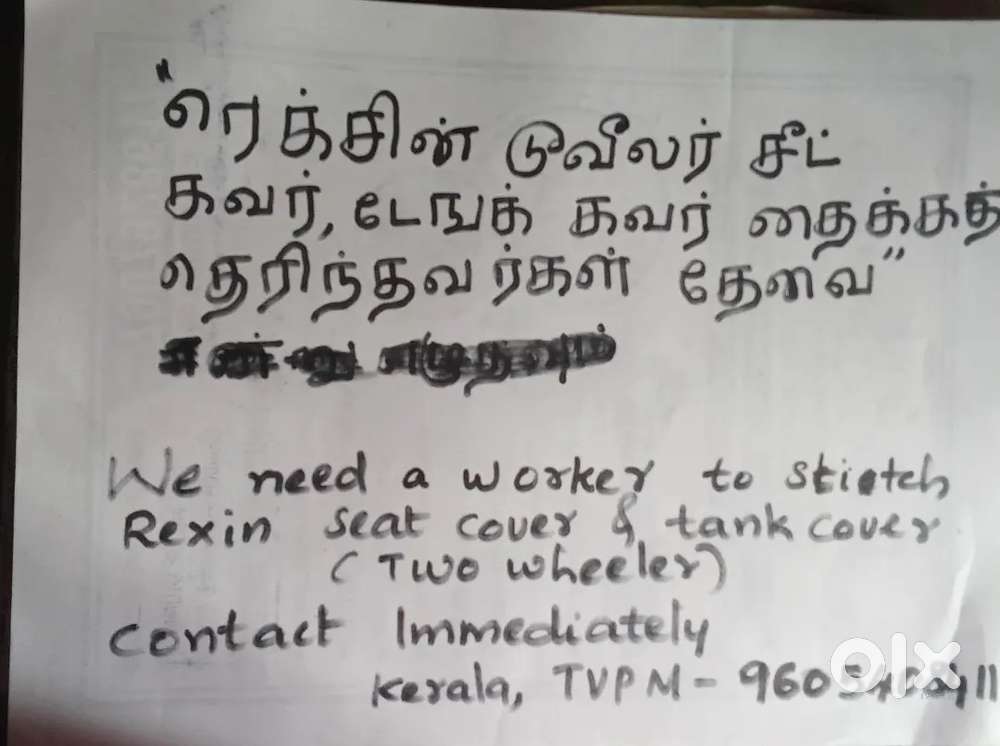 "ரெக்சின் டூவீலர் சீட்
கவர், டேங்க் கவர் தைக்கத்
தெரிந்தவர்கள் தேவை"
We need a worker to stictch
Rexin seat cover & tank cover
(Two wheeler)
Contact Immediately
Kerala, TVPM -
olx